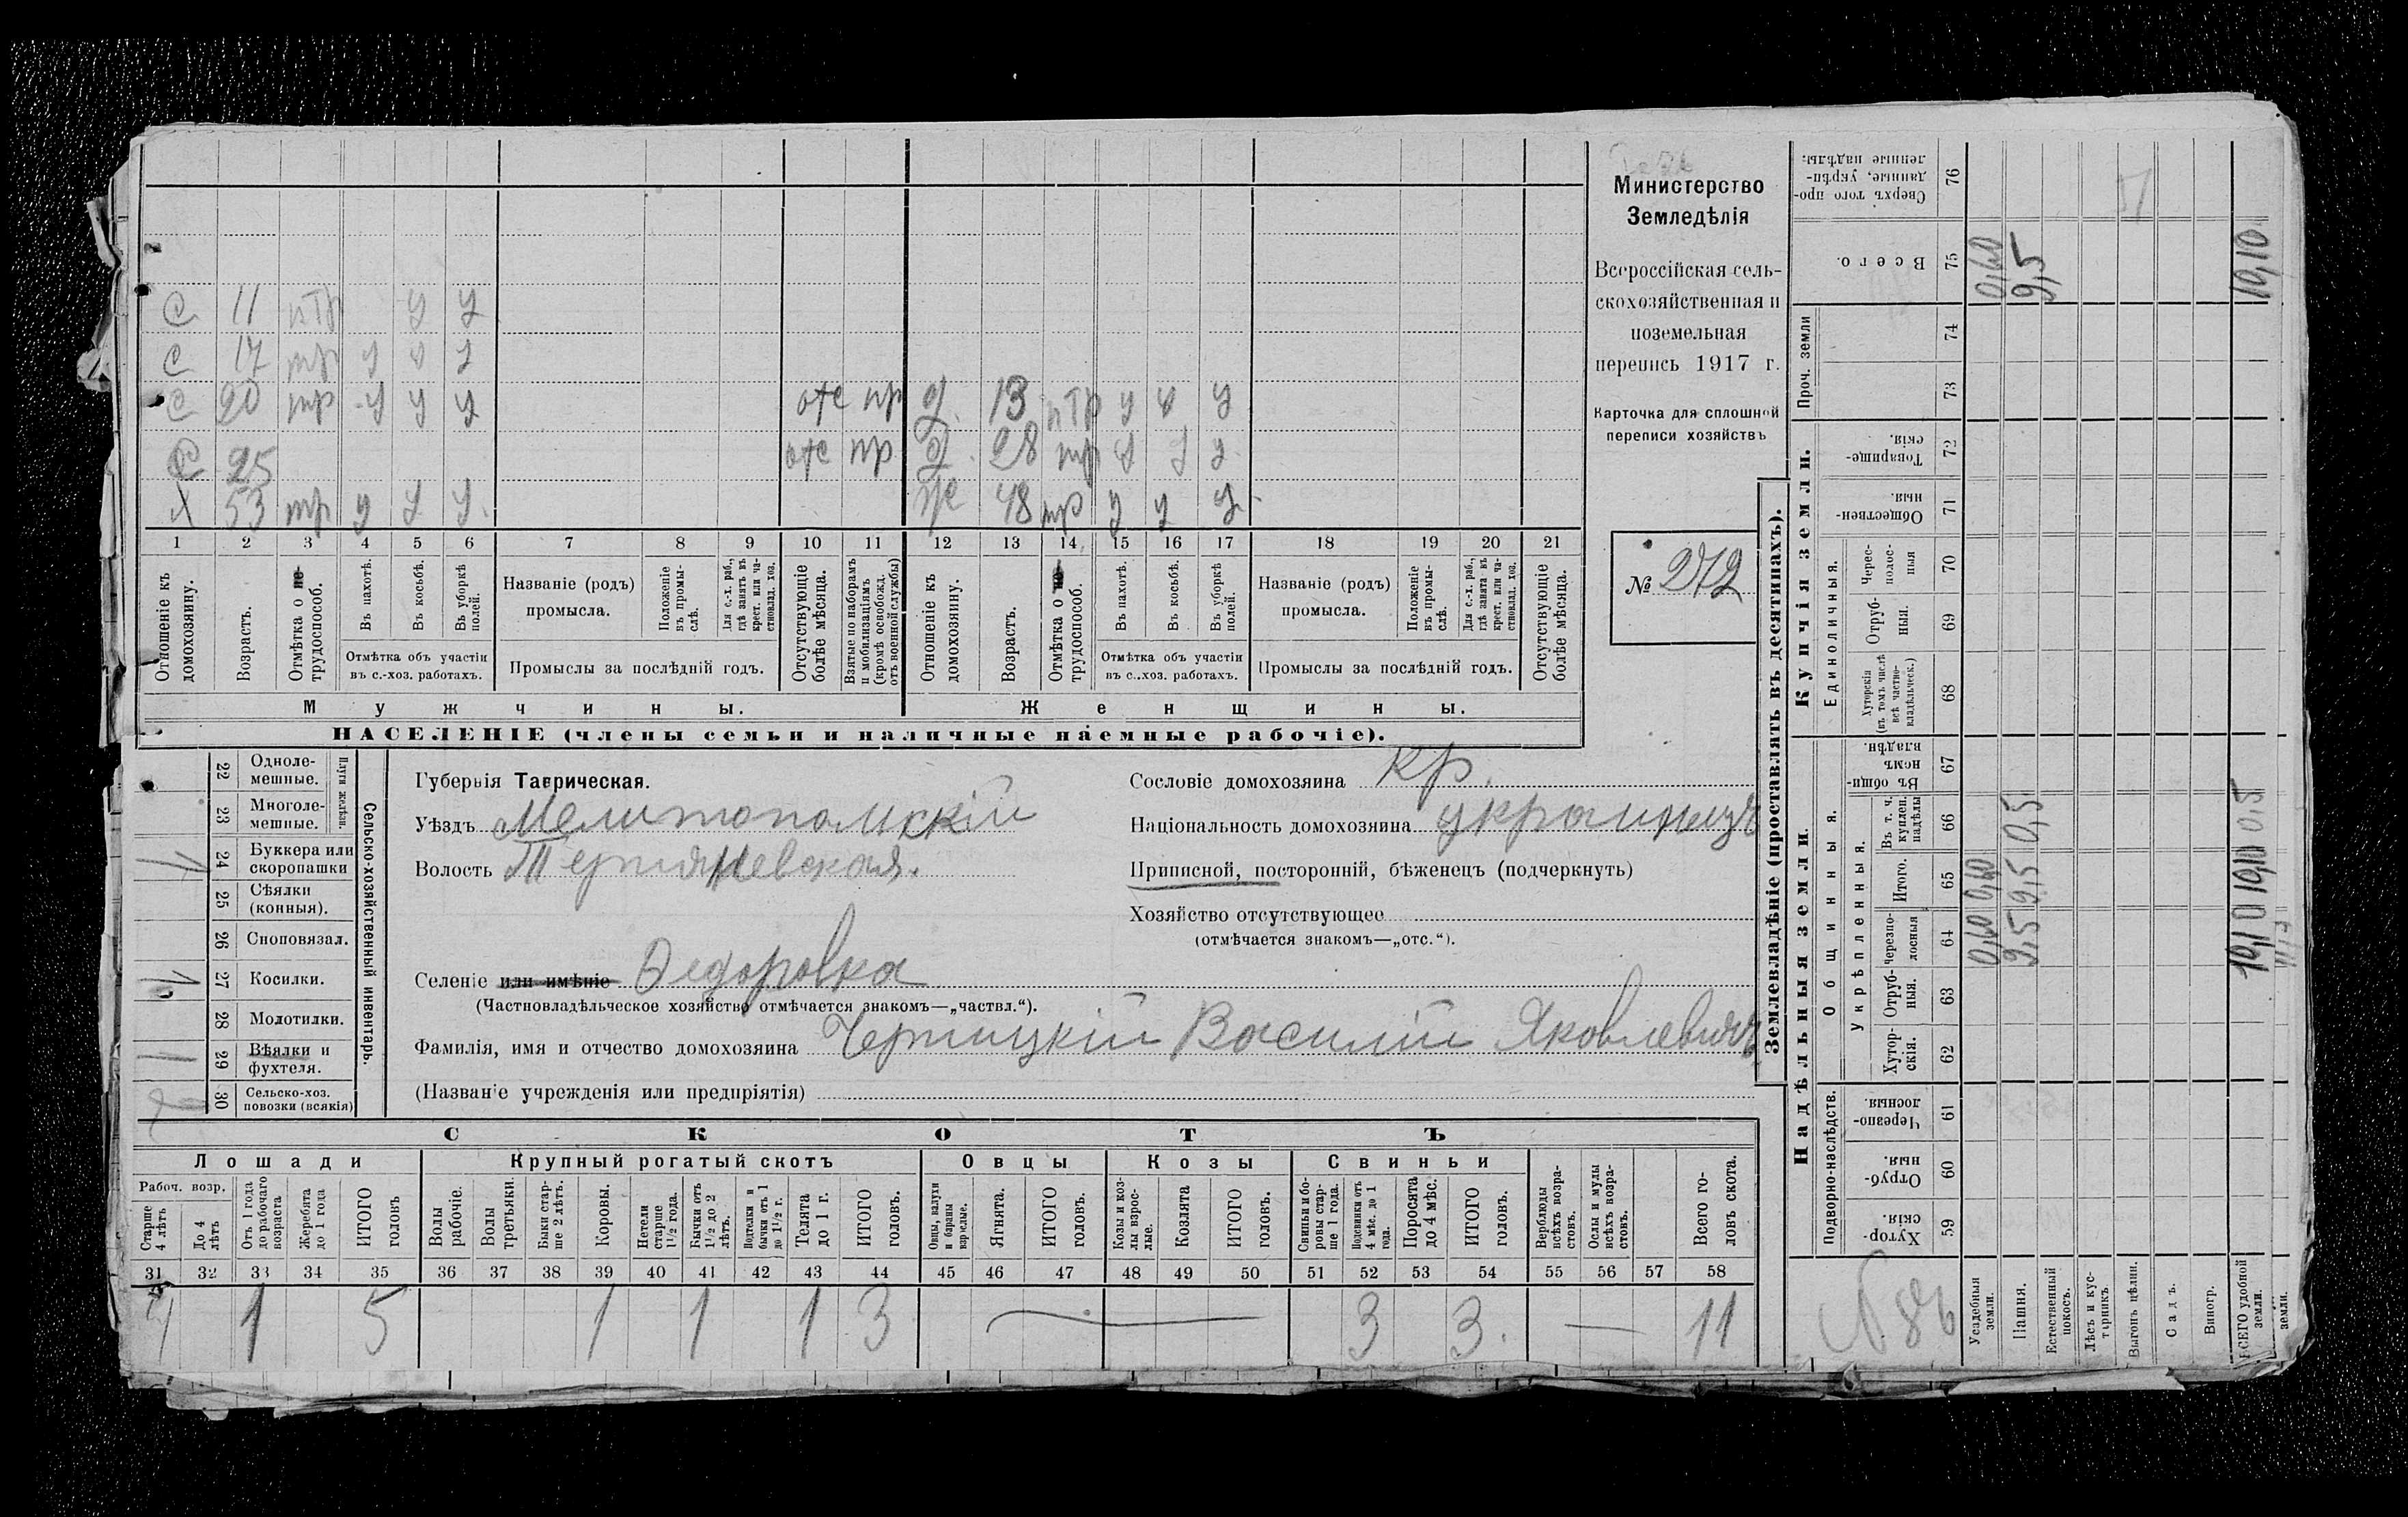 Министерство
Земледѣлія
Всероссійская сель-
скохозяйственная и
поземельная
перепись 1917 г.
Карточка для сплошной
переписи хозяйствъ
№ 272
С 11 нтр у у
С 17 тр у у у
С 20 тр у у у отс пр д. 13 нтр у у у
С 25 отс пр д. 28 тр у у у
Х 53 тр у у у. ж 48 тр у у у.
1 2 3 4 5 6 7 8 9 10 11 12 13 14 15 16 17 18 19 20 21
Отношеніе къ домохозяину.
Возрастъ.
Отмѣтка о не-трудоспособ.
Въ пахотѣ.
Въ косьбѣ.
Въ уборкѣ полей.
Отмѣтка объ участіи въ с.-хоз. работахъ.
Названіе (родъ) промысла.
Положеніе въ промы-слѣ.
Для с.-х. раб., гдѣ занятъ въ крест. или ча-стновлад. хоз.
Промыслы за послѣдній годъ.
Отсутствующіе болѣе мѣсяца.
Взятые по наборамъ и мобилизаціямъ (кромѣ освобожд. отъ военной службы)
Отношеніе къ домохозяину.
Возрастъ.
Отмѣтка о не-трудоспособ.
Въ пахотѣ.
Въ косьбѣ.
Въ уборкѣ полей.
Отмѣтка объ участіи въ с.-хоз. работахъ.
Названіе (родъ) промысла.
Положеніе въ промы-слѣ.
Для с.-х. раб., гдѣ занята въ крест. или ча-стновлад. хоз.
Промыслы за послѣдній годъ.
Отсутствующіе болѣе мѣсяца.
Мужчины. Женщины.
НАСЕЛЕНІЕ (члены семьи и наличные наемные рабочіе).
Сельско-хозяйственный инвентарь.
Плуги желѣзн.
22 Одноле-мешные.
23 Многоле-мешные.
24 Буккера или скоропашки 1
25 Сѣялки (конныя).
26 Сноповязал.
27 Косилки. 1
28 Молотилки.
29 Вѣялки и фухтеля. 1
30 Сельско-хоз. повозки (всякія)
Губернія Таврическая.
Уѣздъ Мелитопольскій
Волость
Селеніе или имѣніе Федоровка
(Частновладѣльческое хозяйство отмѣчается знакомъ—„частвл.“).
Фамилія, имя и отчество домохозяина Черницкій Василій Яковлевичъ
(Названіе учрежденія или предпріятія)
Сословіе домохозяина кр.
Національность домохозяина украинецъ
Приписной, посторонній, бѣженецъ (подчеркнуть)
Хозяйство отсутствующее
(отмѣчается знакомъ—„отс.“).
СКОТЪ
Лошади Крупный рогатый скотъ Овцы Козы Свиньи
Рабоч. возр.
Старше 4 лѣтъ
До 4 лѣтъ
Отъ 1 года до рабочаго возраста
Жеребята до 1 года
ИТОГО головъ
Волы рабочіе.
Волы третьяки.
Быки стар-ше 2 лѣтъ.
Коровы.
Нетели старше 1½ года.
Бычки отъ 1½ до 2 лѣтъ.
Подтелки и бычки отъ 1 до 1½ г.
Телята до 1 г.
ИТОГО головъ.
Овцы, валухи и бараны взрослые.
Ягнята.
ИТОГО головъ.
Козы и коз-лы взрос-лые.
Козлята
ИТОГО головъ.
Свиньи и бо-ровы стар-ше 1 года.
Подсвинки отъ 4 мѣс. до 1 года.
Поросята до 4 мѣс.
ИТОГО головъ.
Верблюды всѣхъ возра-стовъ.
Ослы и мулы всѣхъ возра-стовъ.
Всего го-ловъ скота.
31 32 33 34 35 36 37 38 39 40 41 42 43 44 45 46 47 48 49 50 51 52 53 54 55 56 57 58
4 1 5 1 1 1 3 — 3 3. — 11
Землевладѣніе (проставлять въ десятинахъ).
Надѣльныя земли. Купчія земли. Проч. земли
Подворно-наслѣдств.
Общинныя.
Укрѣпленныя.
Единоличныя.
Хутор-скія. 59
Отруб-ныя. 60
Черезпо-лосныя. 61
Хутор-скія. 62
Отруб-ныя. 63
Черезпо-лосныя 64
Итого. 65
Въ т. ч. куплен. надѣлы 66
Въ общи-номъ владѣн. 67
Хуторскія (въ томъ числѣ всѣ частно-владѣльческ.) 68
Отруб-ныя. 69
Черес-полос-ныя 70
Обществен-ныя. 71
Товарище-скія. 72
73
74
Всего. 75
Сверхъ того про-данные, укрѣп-ленные надѣлы. 76
Усадебныя земли. 0,60 0,60 0,60
Пашня. 9,5 9,5 0,5 9,5
Естественный покосъ.
Лѣсъ и кус-тарникъ
Выгонъ цѣлин.
Садъ.
Виногр.
ВСЕГО удобной земли. 10,10 10,10 0,5 10,10
земли.